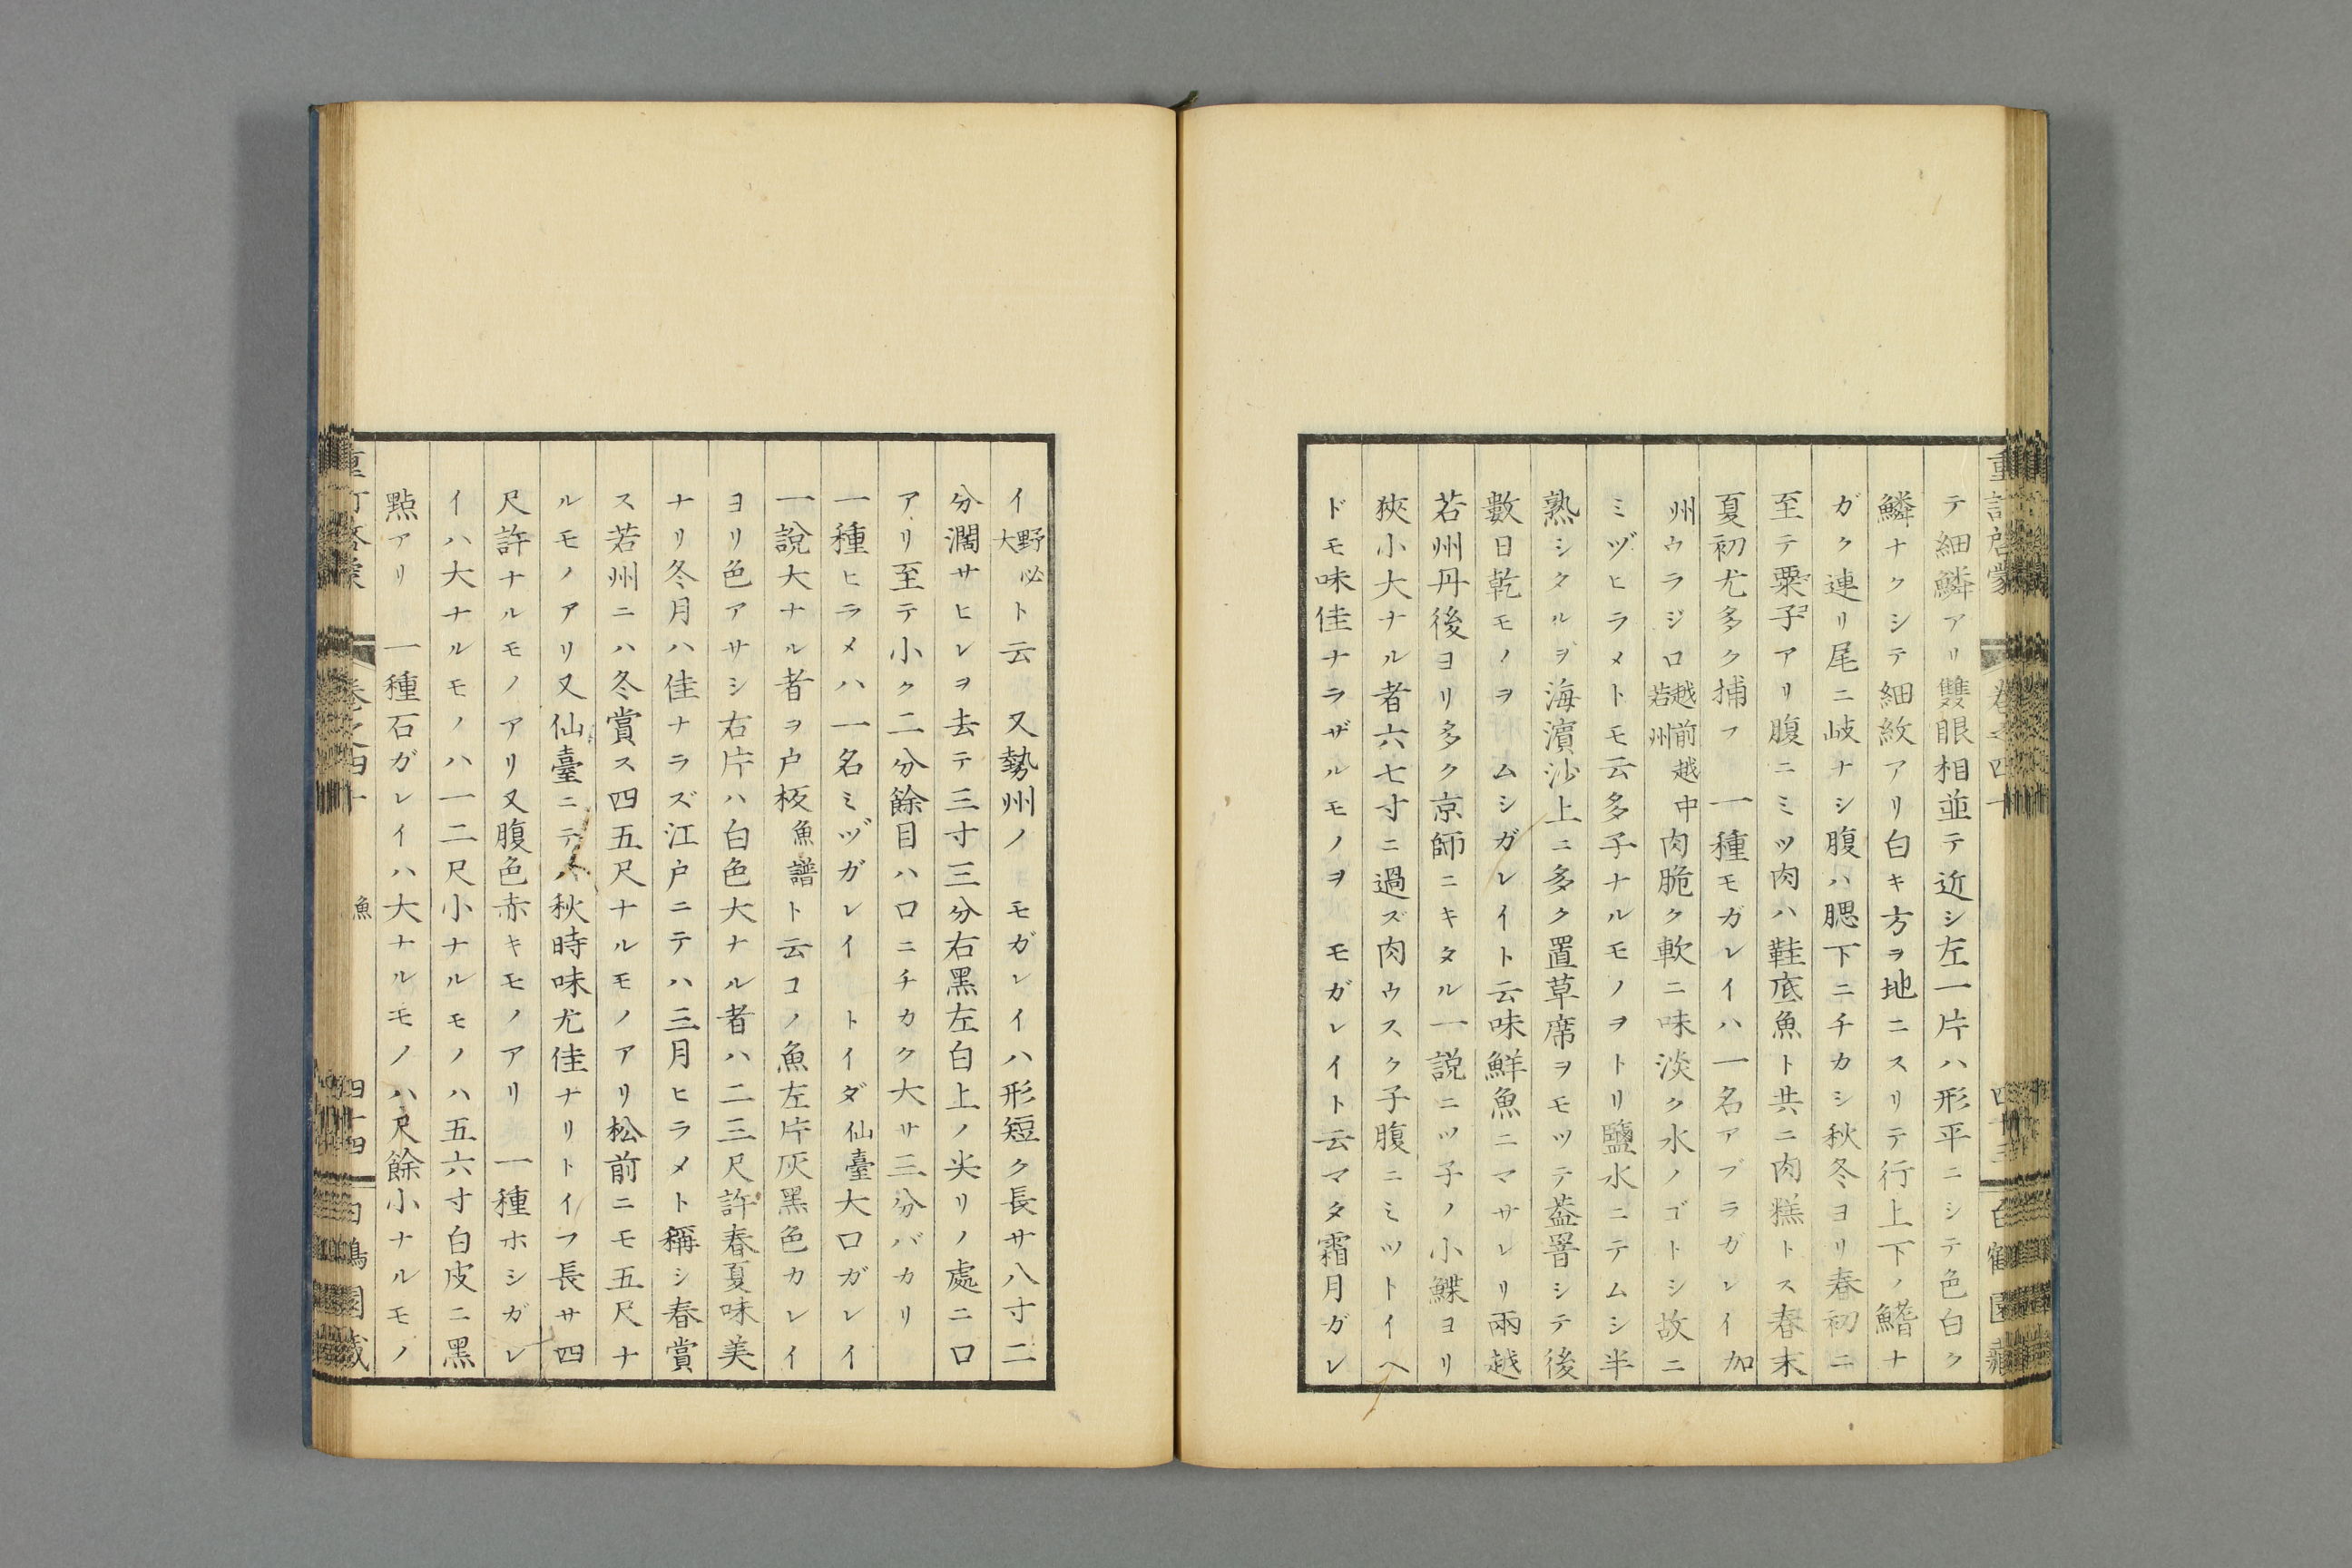 テ細鱗アリ雙眼相並テ近シ左一片ハ形平ニシテ色白ク
鱗ナクシテ細紋アリ白キ方ヲ地ニスリテ行上下ノ鰭ナ
ガク連リ尾ニ岐ナシ腹ハ腮下ニチカシ秋冬ヨリ春初ニ
至テ粟子アリ腹ニミツ肉ハ鞋底魚ト共ニ肉糕トス春末
夏初尤多ク捕フ 一種モガレイハ一名アブラガレイ加
州ウラジロ越前越中若州肉脆ク軟ニ味淡ク水ノゴトシ故ニ
ミヅヒラメトモ云多子ナルモノヲトリ鹽水ニテムシ半
熟シタルヲ海濱沙上ニ多ク置草席ヲモツテ葢罯シテ後
數日乾モノヲ ムシガレイト云味鮮魚ニマサレリ兩越
若州丹後ヨリ多ク京師ニキタル一説ニツ子ノ小鰈ヨリ
狹小大ナル者六七寸ニ過ズ肉ウスク子腹ニミツトイヘ
ドモ味佳ナラザルモノヲ モガレイト云マタ霜月ガレ
イ大野必ト云 又勢州ノ モガレイハ形短ク長サ八寸二
分濶サヒレヲ去テ三寸三分右黑左白上ノ尖リノ處ニ口
アリ至テ小ク二分餘目ハ口ニチカク大サ三分バカリ
一種ヒラメハ一名ミヅガレイ トイダ仙臺大口ガレイ
一說大ナル者ヲ戸板魚譜ト云コノ魚左片灰黑色カレイ
ヨリ色アサシ右片ハ白色大ナル者ハ二三尺許春夏味美
ナリ冬月ハ佳ナラズ江戸ニテハ三月ヒラメト稱シ春賞
ス若州ニハ冬賞ス四五尺ナルモノアリ松前ニモ五尺ナ
ルモノアリ又仙臺ニテハ秋時味尤佳ナリトイフ長サ四
尺許ナルモノアリ又腹色赤キモノアリ 一種ホシガレ
イハ大ナルモノハ一二尺小ナルモノハ五六寸白皮ニ黑
點アリ 一種石ガレイハ大ナルモノハ尺餘小ナルモノ
魚